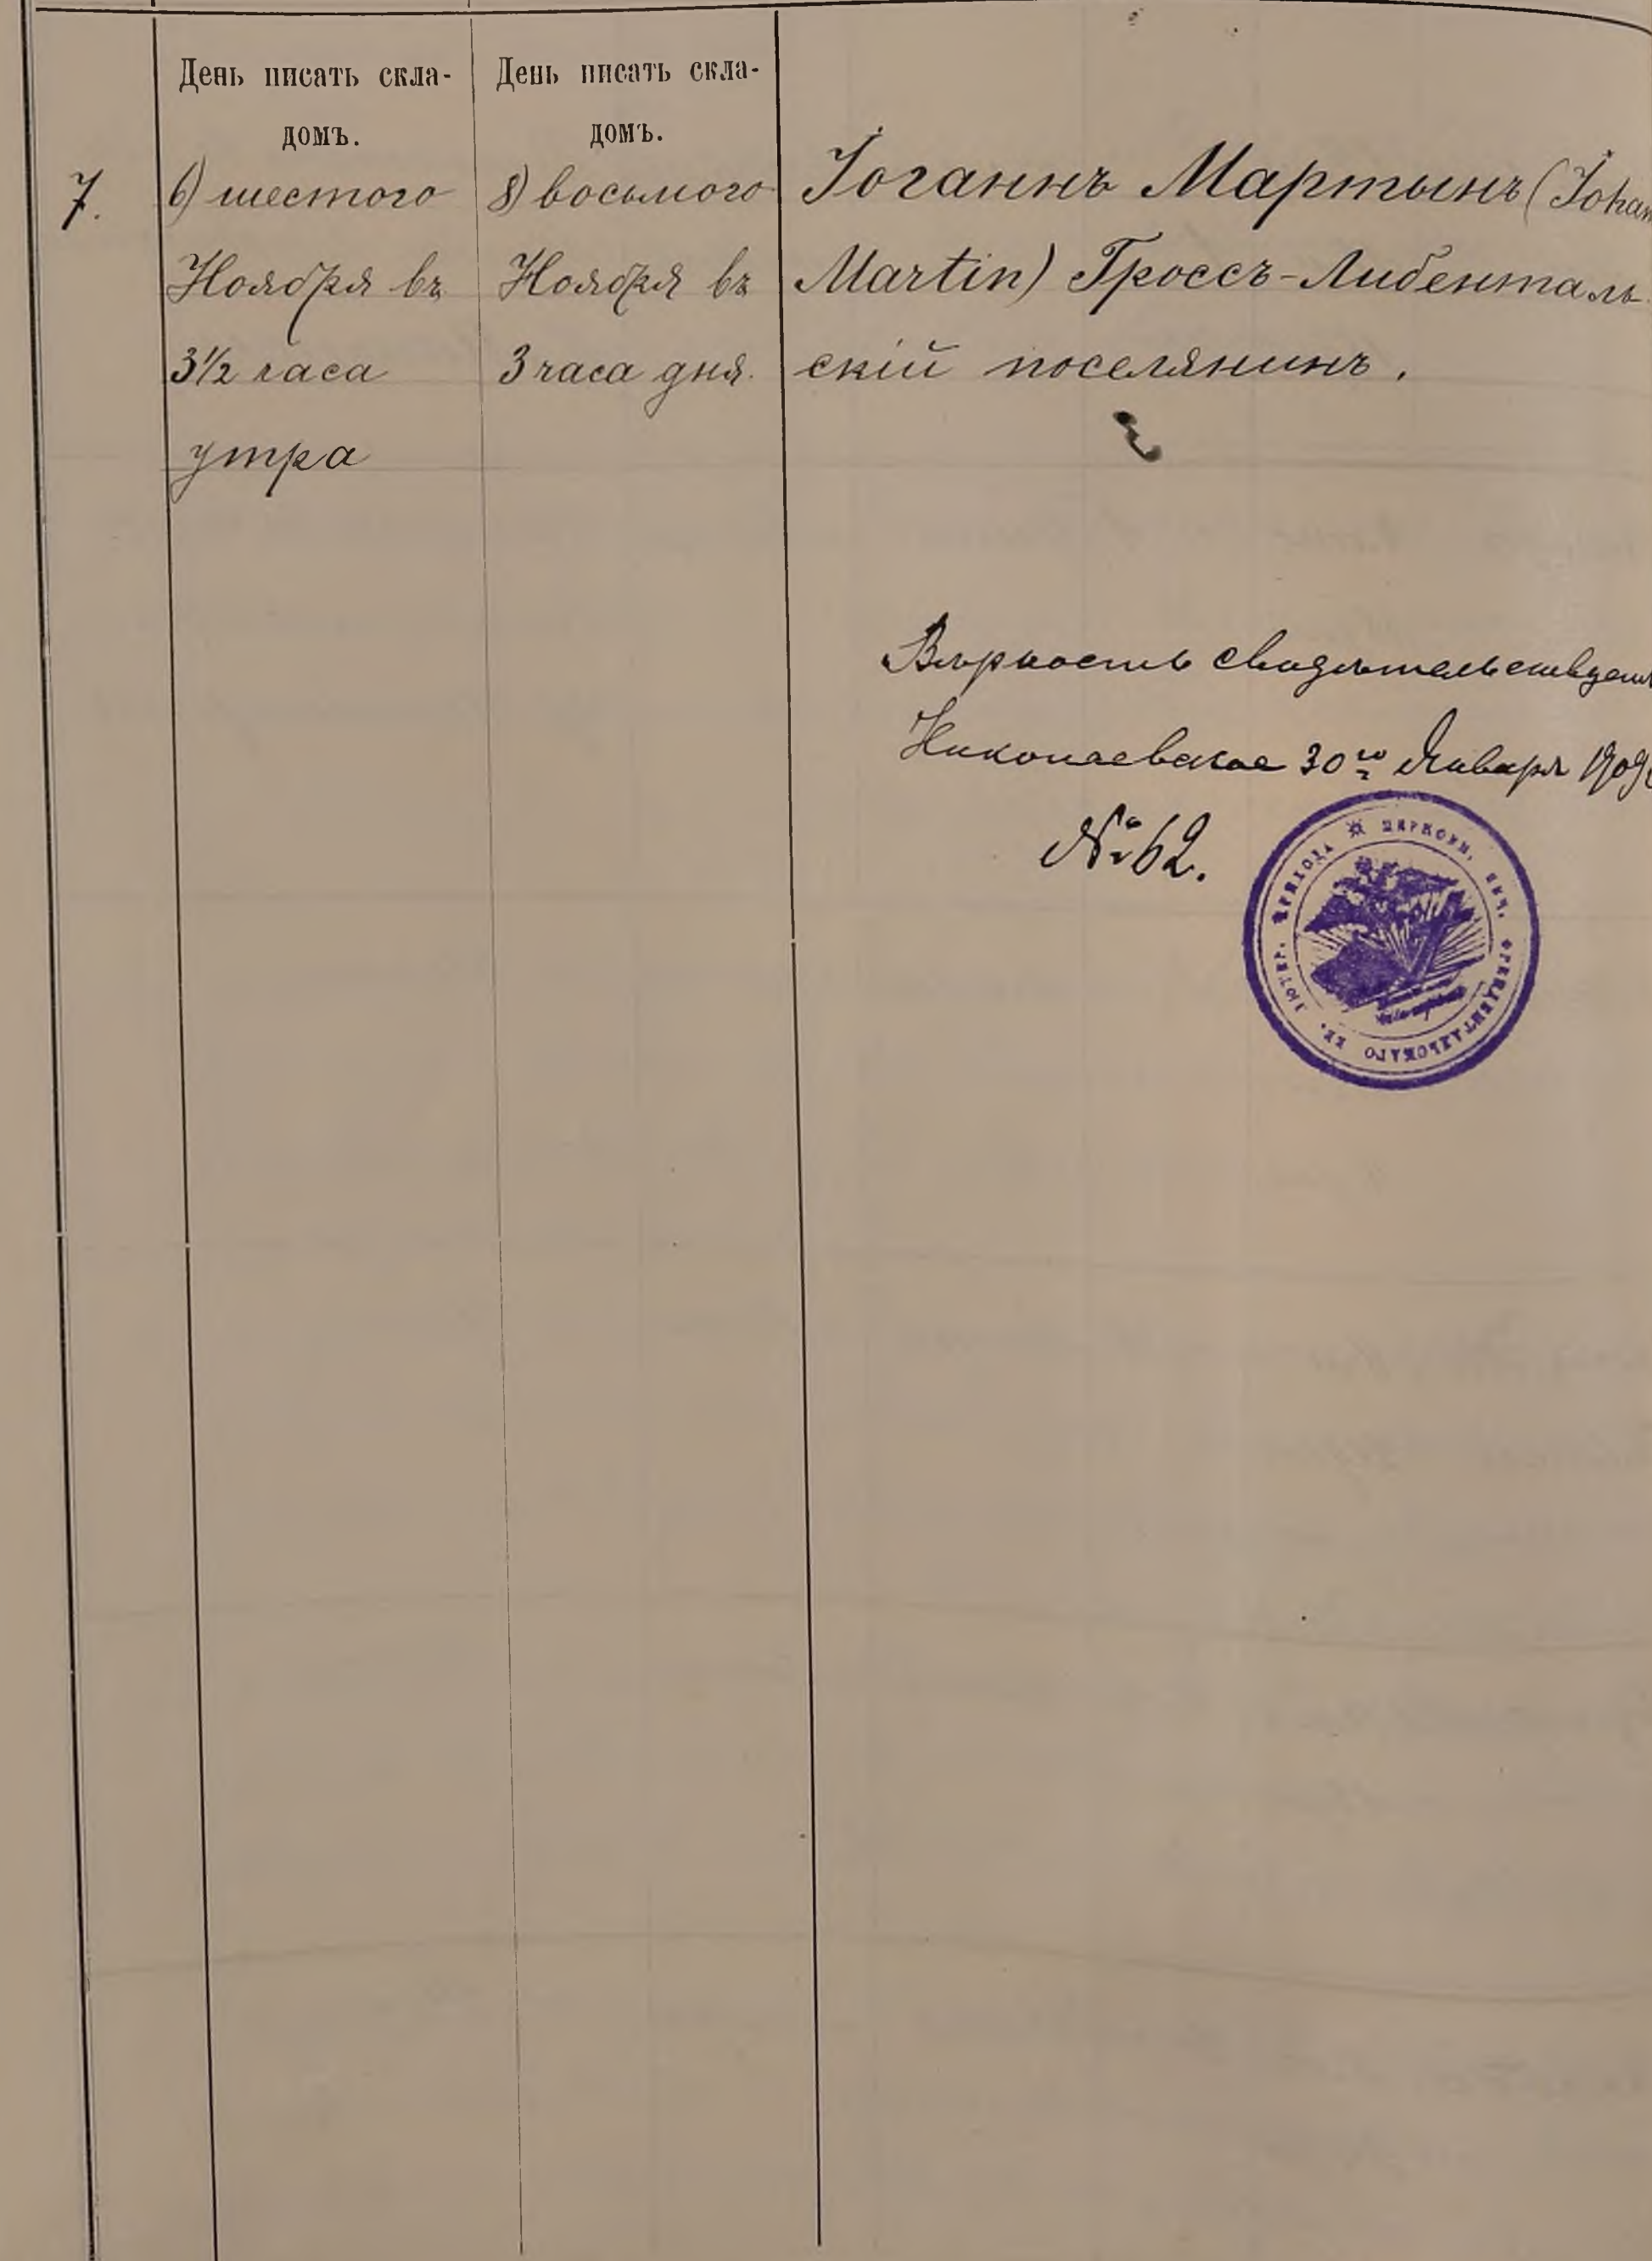 День писать скла-
домъ.
День писать скла-
домъ.
7.
6) шестого
Ноября въ
3½ часа
утра
8) восьмого
Ноября въ
3 часа дня.
Іоганнъ Мартынъ (Johan
Martin) Гроссъ-Либенталь-
скій поселянинъ.
Вѣрность свидѣтельствуетъ
Николаевское 30го Января 1909
№ 62.
ЦЕРКОВН. ПЕЧ. ФРЕЙДЕНТАЛЬСКАГО ЕВ. ЛЮТЕР. ПРИХОДА